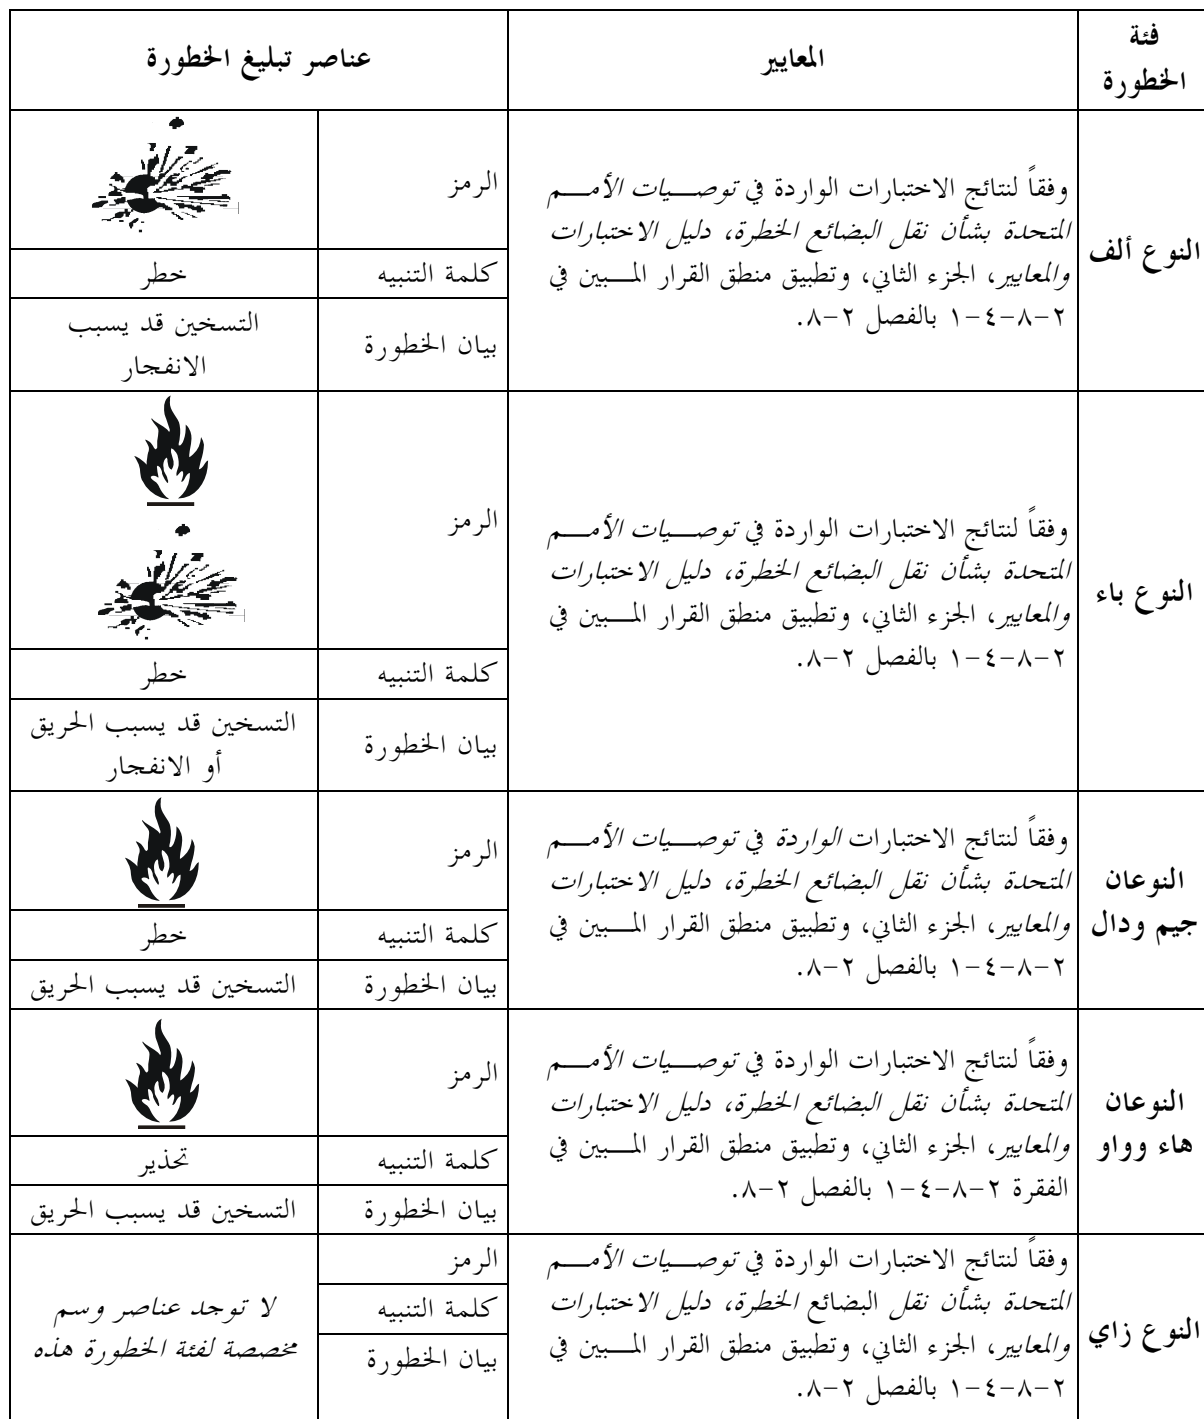 فئة
الخطورة
المعايير
عناصر تبليغ الخطورة
النوع ألف
وفقاً لنتائج الاختبارات الواردة في توصيات الأمم
المتحدة بشأن نقل البضائع الخطرة، دليل الاختبارات
والمعايير، الجزء الثاني، وتطبيق منطق القرار المبين في
٢-٨-٤-١ بالفصل ٢-٨.
الرمز
كلمة التنبيه
خطر
بيان الخطورة
التسخين قد يسبب
الانفجار
النوع باء
وفقاً لنتائج الاختبارات الواردة في توصيات الأمم
المتحدة بشأن نقل البضائع الخطرة، دليل الاختبارات
والمعايير، الجزء الثاني، وتطبيق منطق القرار المبين في
٢-٨-٤-١ بالفصل ٢-٨.
الرمز
كلمة التنبيه
خطر
بيان الخطورة
التسخين قد يسبب الحريق
أو الانفجار
النوعان
جيم ودال
وفقاً لنتائج الاختبارات الواردة في توصيات الأمم
المتحدة بشأن نقل البضائع الخطرة، دليل الاختبارات
والمعايير، الجزء الثاني، وتطبيق منطق القرار المبين في
٢-٨-٤-١ بالفصل ٢-٨.
الرمز
كلمة التنبيه
خطر
بيان الخطورة
التسخين قد يسبب الحريق
النوعان
هاء وواو
وفقاً لنتائج الاختبارات الواردة في توصيات الأمم
المتحدة بشأن نقل البضائع الخطرة، دليل الاختبارات
والمعايير، الجزء الثاني، وتطبيق منطق القرار المبين في
الفقرة ٢-٨-٤-١ بالفصل ٢-٨.
الرمز
كلمة التنبيه
تحذير
بيان الخطورة
التسخين قد يسبب الحريق
النوع زاي
وفقاً لنتائج الاختبارات الواردة في توصيات الأمم
المتحدة بشأن نقل البضائع الخطرة، دليل الاختبارات
والمعايير، الجزء الثاني، وتطبيق منطق القرار المبين في
٢-٨-٤-١ بالفصل ٢-٨.
الرمز
كلمة التنبيه
بيان الخطورة
لا توجد عناصر وسم
مخصصة لفئة الخطورة هذه